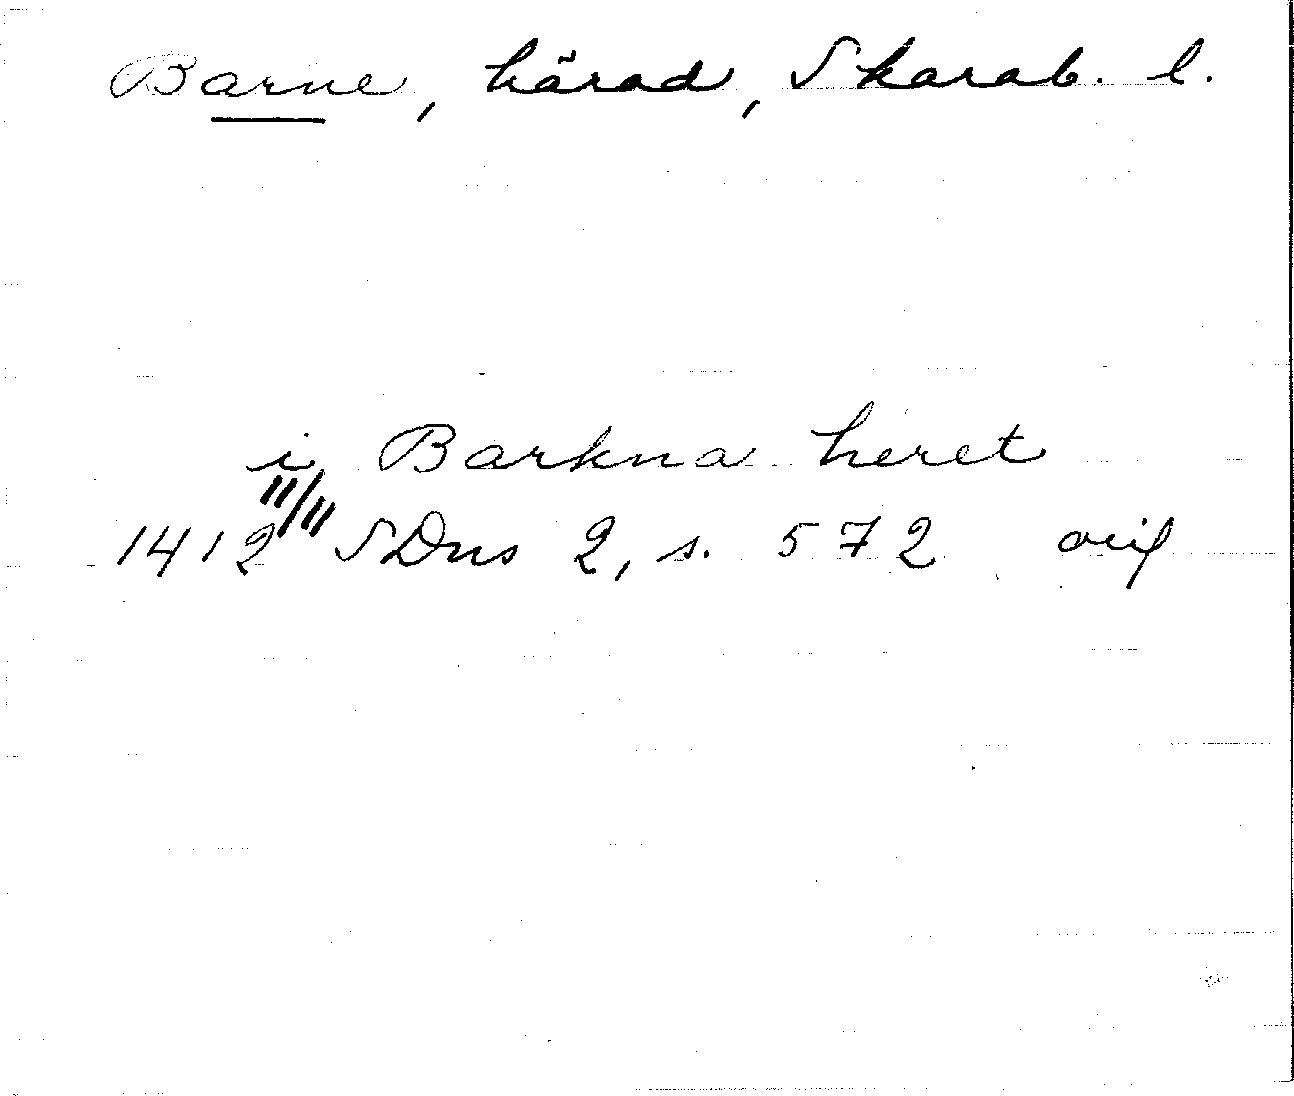 Barne, härad, Skarab. l.
i Barkna heret
1412 11/11 SDns 2, s. 572 orig